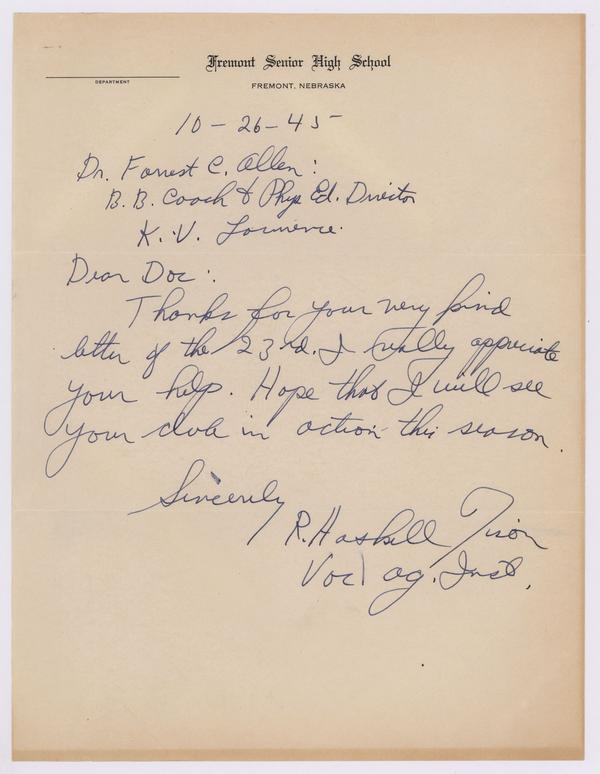 Fremont Senior High School
DEPARTMENT
FREMONT, NEBRASKA
10-26-45
Dr. Forrest C. Allen:
B.B. Coach & Phys Ed. Director
K.U. Lawrence.
Dear Doc:
Thanks for your very kind
letter of the 23rd. I really appreciate
your help. Hope that I will see
your club in action this season.
Sincerely
R. Haskell Tison
Voc'l Ag. Inst.